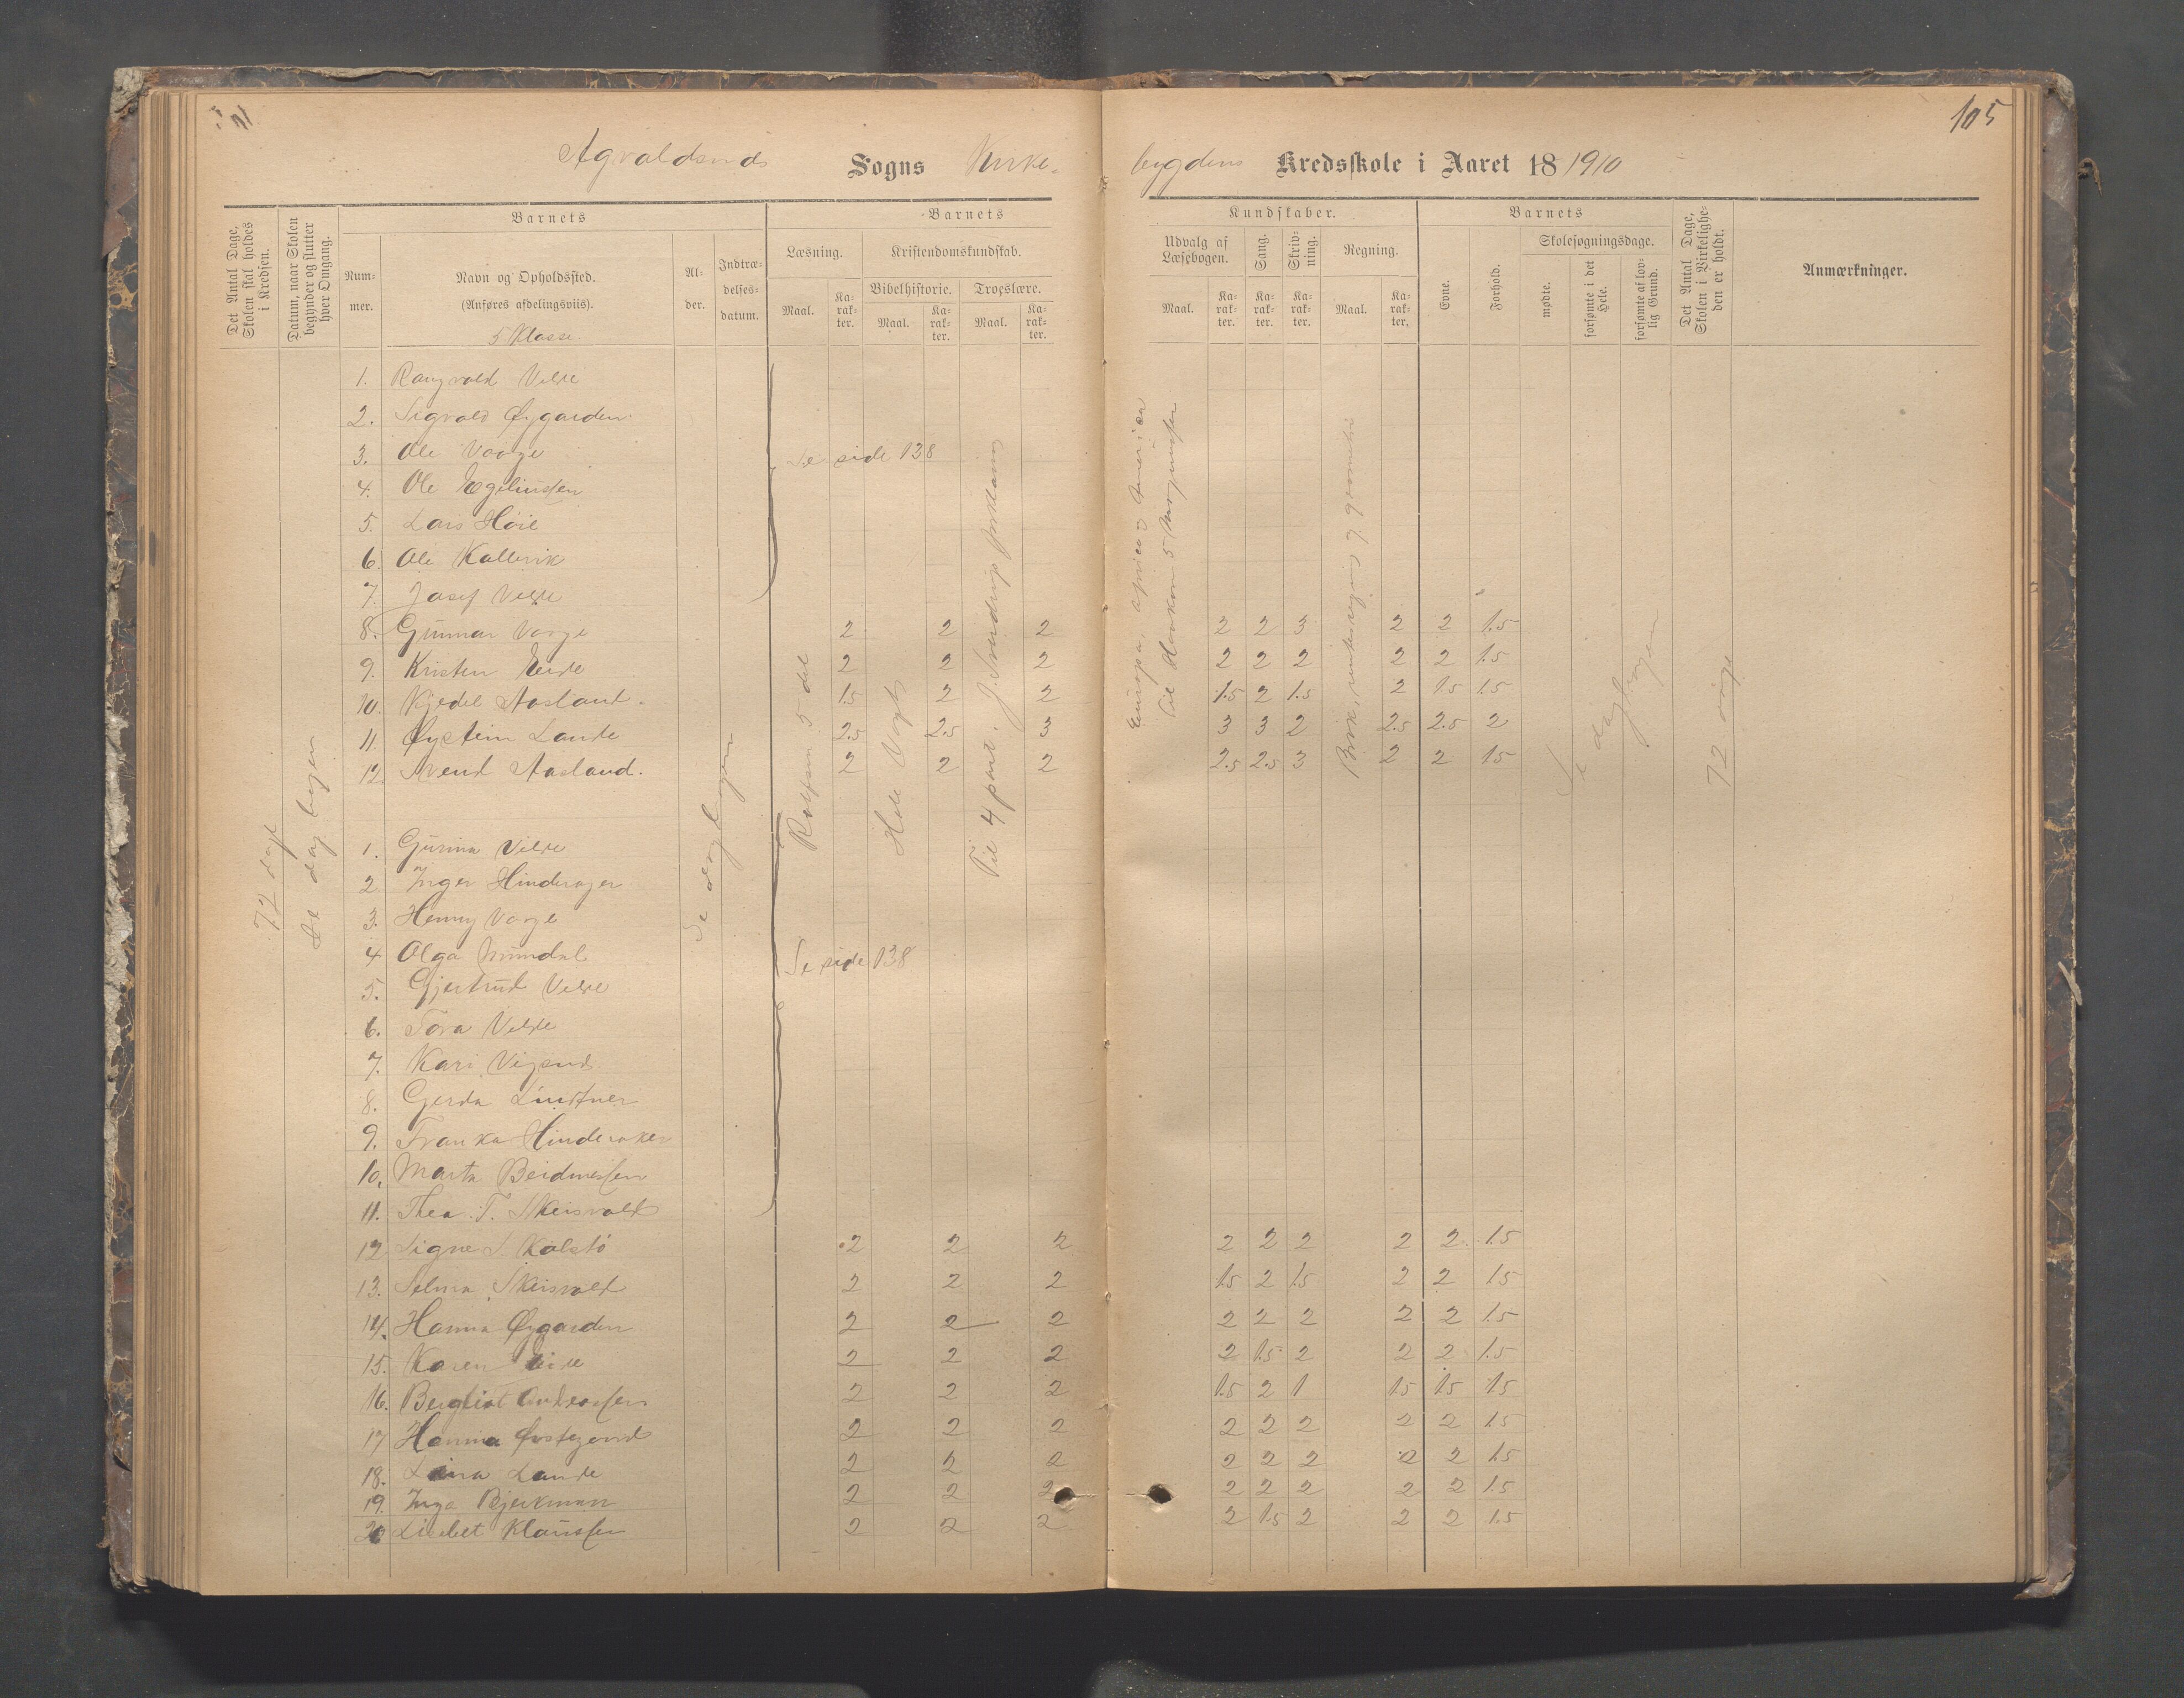 105
Sogns Kirke-
bygdens Kredsskole i Aaret 18 1910
Det Antal Dage, Skolen skal holdes i Kredsen.
Datum, naar Skolen begynder og slutter hver Omgang.
Nummer.
Barnets
Navn og Opholdssted.
(Anføres afdelingsviis).
5 Klasse.
Alder.
Indtrædelsesdatum.
Barnets
Læsning.
Maal.
Karakter.
Kristendomskundskab.
Bibelhistorie.
Maal.
Karakter.
Troeslære.
Maal.
Karakter.
Kundskaber.
Udvalg af Læsebogen.
Maal.
Karakter.
Sang.
Karakter.
Skrivning.
Karakter.
Regning.
Maal.
Karakter.
Barnets
Evne.
Forhold.
Skolesøgningsdage.
mødte.
forsømte i det Hele.
forsømte af lovlig Grund.
Det Antal Dage, Skolen i Virkeligheden er holdt.
Anmærkninger.
72 dage
Se dagbogen
Se dagbogen
Rolfsen 5 del
Hele Vogt
Til 4 part. J. Sverdrups forklaring
Se dagbogen
1. Rangvald Velde
2. Sigvald Øygarden
3. Ole Vorge
Se side 138
4. Ole
5. Lars Høie
6. Ole Kallevik
7. Josef Velde
8. Gunnar Vorge 2 2 2 2 2 3 2 2 1.5
9. Kristen Eide 2 2 2 2 2 2 2 2 1.5
10. Kjedel Aasland. 1.5 2 2 1.5 2 1.5 2 1.5 1.5
11. Øystein Lande 2.5 2.5 3 3 3 2 2.5 2.5 2
12. Svend Aasland. 2 2 2 2.5 2.5 3 2 2 1.5
1. Gurina Velde
2 Inger Hinderager
3. Henny Vorge
4 Olga
Se side 138
5. Gjertrud Velde
6. Tora Velde
7. Kari
8. Gerda Lindtner
9. Franka Hinderaker
10. Marta
11. Thea T. Skeisvold
12 Signe S. Kalstø 2 2 2 2 2 2 2 2 1.5
13. Selma Skeisvold 2 2 2 1.5 2 1.5 2 2 1.5
14. Hanna Øygarden 2 2 2 2 2 2 2 2 1.5
15. Karen Eide 2 2 2 2 1.5 2 2 2 1.5
16. Bergliot Andreassen 2 2 2 1.5 2 1 1.5 1.5 1.5
17 Hanna 2 2 2 2 2 2 2 2 1.5
18. Lina Lande 2 2 2 2 2 2 2 2 1.5
19. Inga Bjerkman 2 2 2 2 2 2 2 2 1.5
20 Lisebet Klaussen 2 2 2 2 1.5 2 2 2 1.5